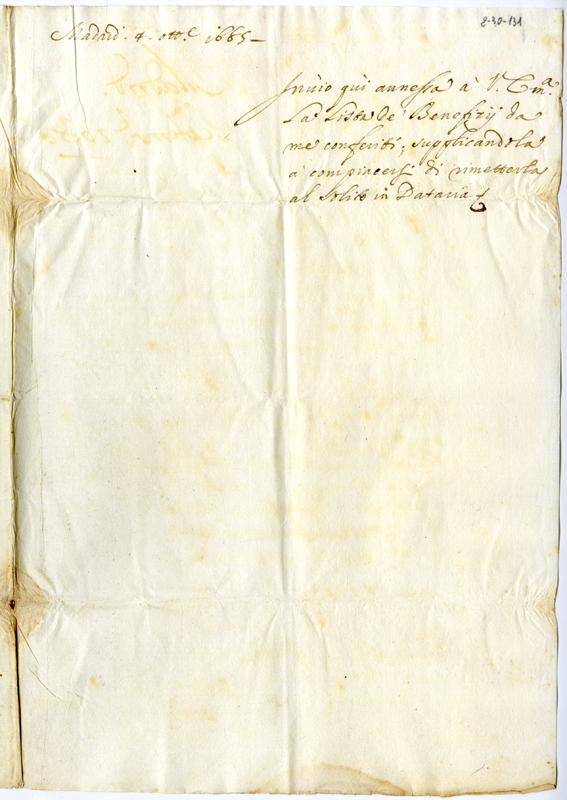 2-30-131
Madrid. 4. ott.e 1685
Invio quì annessa à V. Em.a
La Lista de' Benefizij da
me conferiti; supplicandola
à compiacersi di rimetterla
al solito in Dataria